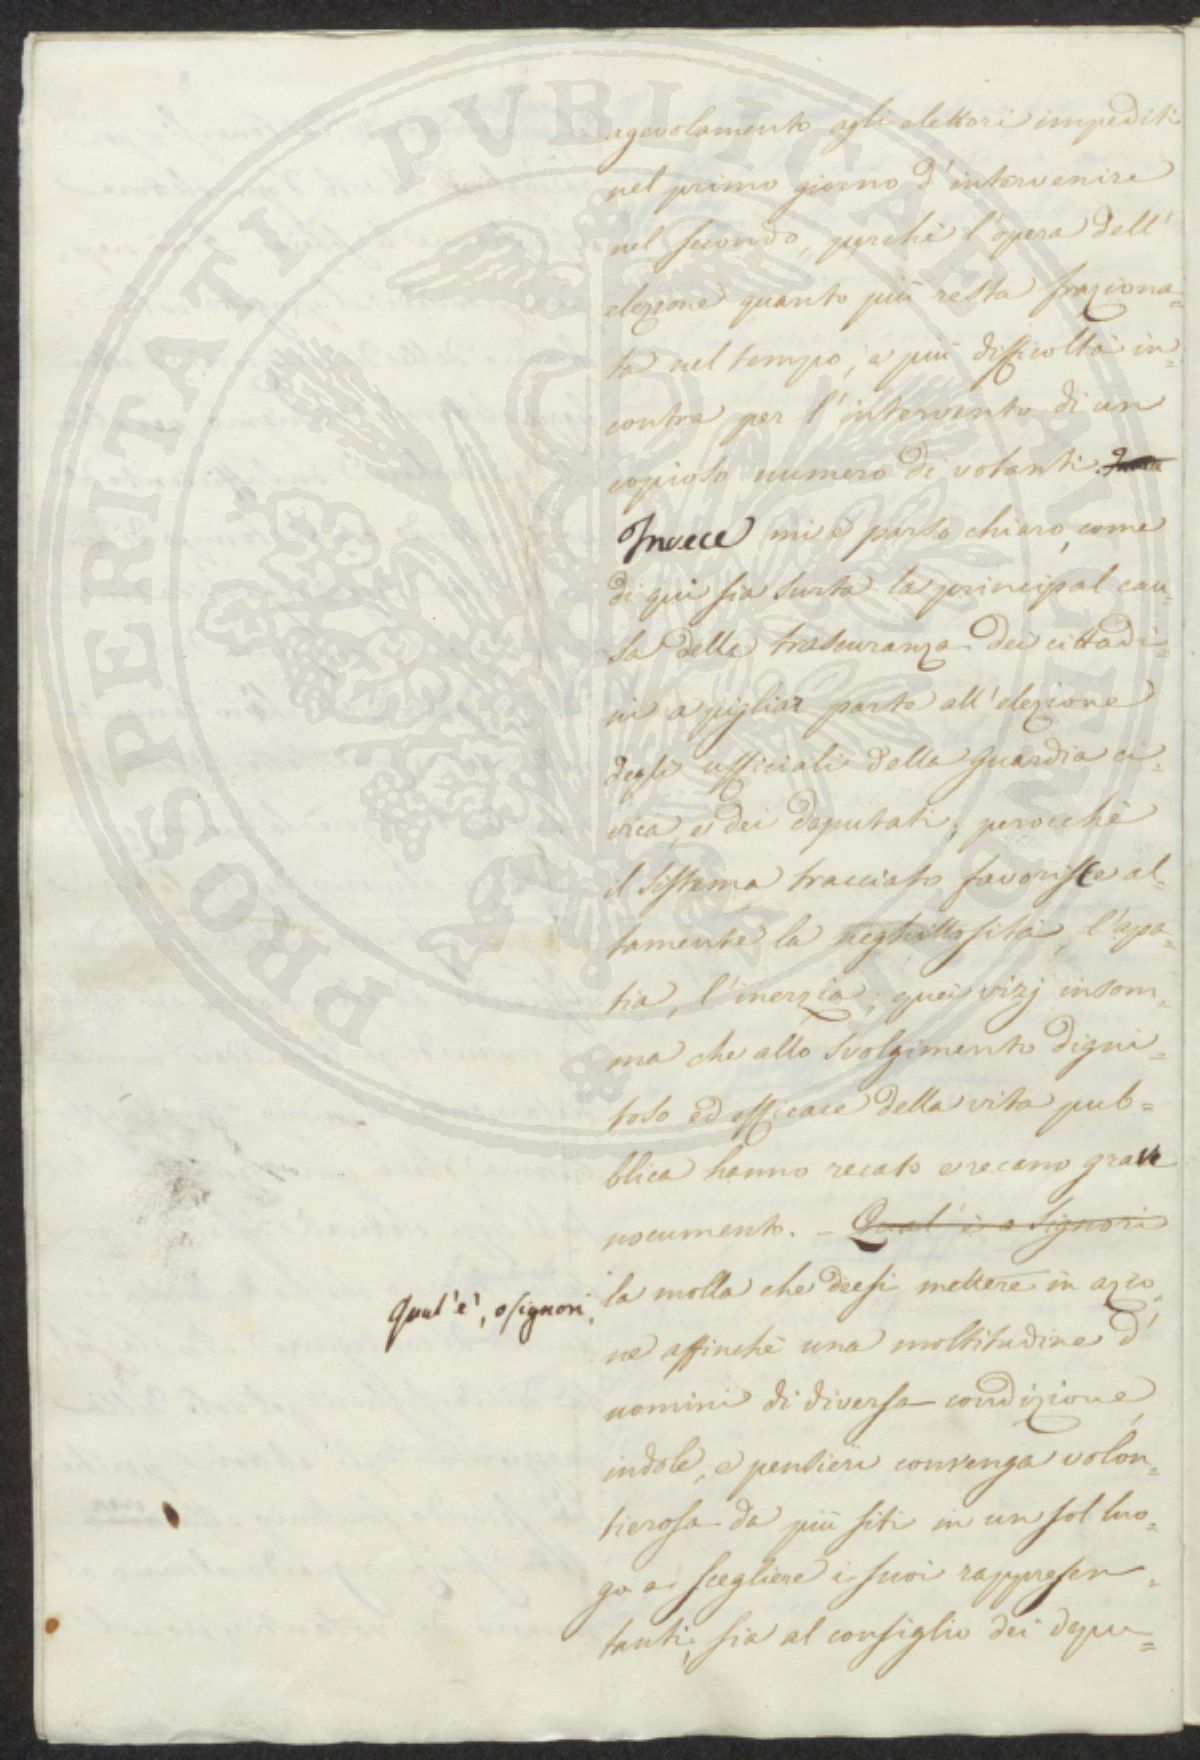 agevolamento agli elettori impediti
nel primo giorno d'intervenire
nel secondo, perchè l'opera dell'
elezione quanto più resta fraziona=
ta nel tempo, e più difficoltà in=
contra per l'intervento di un
copioso numero di votanti.
Invece mi è parso chiaro, come
di qui sia surta la principal cau=
sa della trascuranza dei cittadi=
ni a pigliar parte all'elezione
degli ufficiali della guardia ci=
vica, e dei deputati; perocchè
il sistema tracciato favorisce al=
tamente la neghittosità, l'apa=
tia, l'inerzia; quei vizj insom=
ma che allo svolgimento digni=
toso ed efficace della vita pub=
blica hanno recato e recano grave
nocumento. - Qual'è o Signori
Qual'è, o signori,
la molla che deesi mettere in azio=
ne affinchè una moltitudine d'
uomini di diversa condizione,
indole, e pensieri convenga volon=
tierosa da più siti in un sol luo=
go a scegliere i suoi rappresen=
tanti, sia al consiglio dei depu=
PROSPERITATI PVBLICAE AVGENDAE